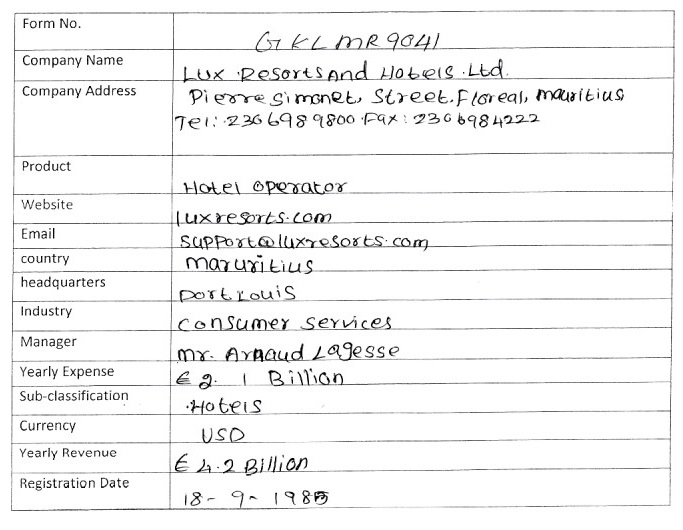 Form No.
GKLMR9041
Company Name
Lux Resorts And Hotels Ltd.
Company Address
Pierre simonet, Street, Floreal, mauritius
Tel: 230 698 9800 Fax: 230 6984222
Product
Hotel operator
Website
luxresorts.com
Email
support@luxresorts.com
country
maruritius
headquarters
portlouis
Industry
consumer services
Manager
mr. Arnaud Lagesse
Yearly Expense
€ 2. 1 Billion
Sub-classification
Hotels
Currency
USD
Yearly Revenue
€ 4.2 Billion
Registration Date
18- 9- 1985